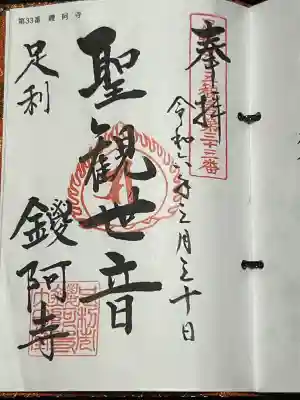 第33番 鑁阿寺
奉拝
第三十三番
令和六年三月三十日
聖観世音
足利
鑁阿寺